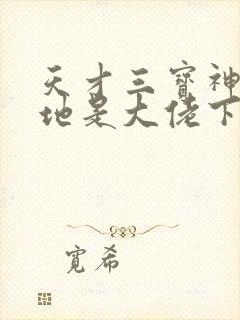 天才三寶神
地是大佬下
寬希